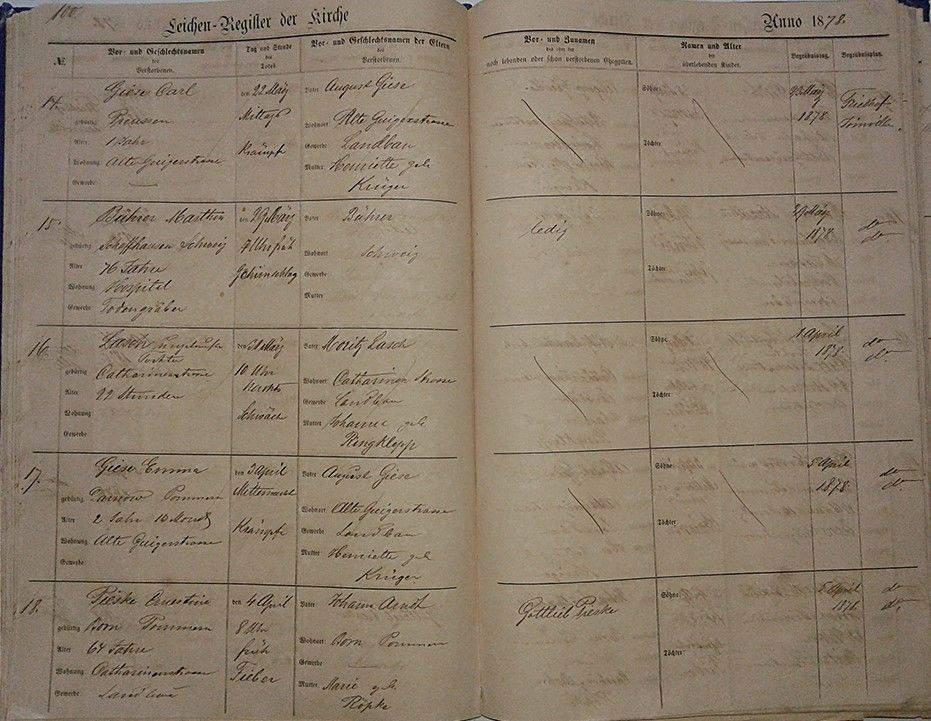 100.
Leichen-Register der Kirche
Anno 1878.
№
Vor- und Geschlechtsnamen
des
Verstorbenen.
Tag und Stunde
des
Todes.
Vor- und Geschlechtsnamen der Eltern
des
Verstorbenen.
Vor- und Zunamen
des oder der
noch lebenden oder schon verstorbenen Ehegatten.
Namen und Alter
der
überlebenden Kinder.
Begräbnisstag.
Begräbnisplatz.
14.
Giese Carl
gebürtig Preussen
Alter 1 Jahr
Wohnung Alte Geigerstrasse
Gewerbe
den 22 März
Mittags
Krämpfe
Vater August Giese
Wohnort Alte Geigerstrasse
Gewerbe Landbau
Mutter Henriette geb
Krüger
Söhne
Töchter
1878
Friedhof
Joinville
15.
Bührer
gebürtig Schaffhausen Schweiz
Alter 76 Jahre
Wohnung Hospital
Gewerbe Todengräber
den 29 März
Uhr früh
Vater Bührer
Wohnort Schweiz
Gewerbe
Mutter
ledig
Söhne
Töchter
1878
do
do
16.
Lasch
Tochter
gebürtig Catharinenstrasse
Alter 22 Stunden
Wohnung
Gewerbe
den März
10 Uhr
Nachts
Schwäche
Vater Moritz Lasch
Wohnort Catharinen Strasse
Gewerbe Landbau
Mutter Johanne geb
Söhne
Töchter
1 April
1878
do
do
17.
Giese Emma
gebürtig Pommern
Alter 2 Jahr 10 Monat
Wohnung Alte Geigerstrasse
Gewerbe
den 3 April
Mitternacht
Krämpfe
Vater August Giese
Wohnort Alte Geigerstrasse
Gewerbe Landbau
Mutter Henriette geb
Krüger
Söhne
Töchter
5 April
1878
do
do
18.
Pieske Ernestine
gebürtig Born Pommern
Alter 64 Jahre
Wohnung Catharinenstrasse
Gewerbe
den 4 April
8 Uhr
früh
Fieber
Vater Johann Arndt
Wohnort Born Pommern
Gewerbe
Mutter Marie geb.
Röpke
Gottlieb Pieske
Söhne
Töchter
5 April
1878
do
do